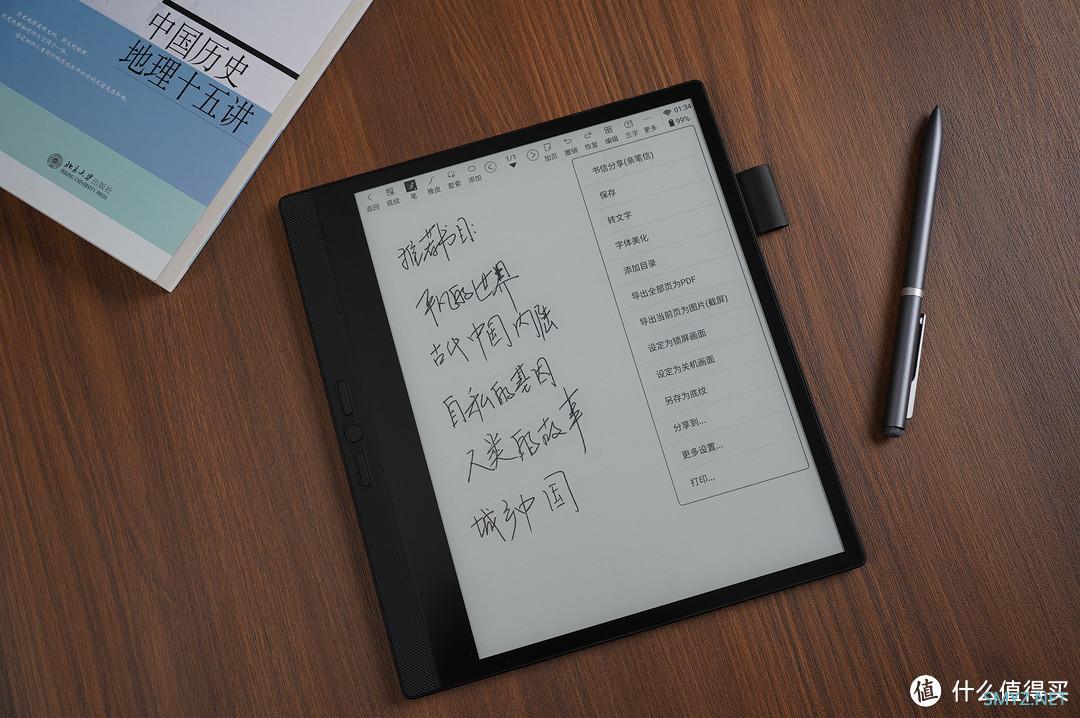 中国历史
地理十五讲
北京大学出版社
PEKING UNIVERSITY PRESS
01:34
99%
返回 底纹 笔 橡皮 套索 添加 1/1 加页 撤销 恢复 编辑 忘字 更多
推荐书目:
平凡的世界
古代中国内陆
自私的基因
人类的故事
城乡中国
书信分享(亲笔信)
保存
转文字
字体美化
添加目录
导出全部页为PDF
导出当前页为图片(截屏)
设定为锁屏画面
设定为关机画面
另存为底纹
分享到...
更多设置...
打印...
值 什么值得买
SMYZ.NET